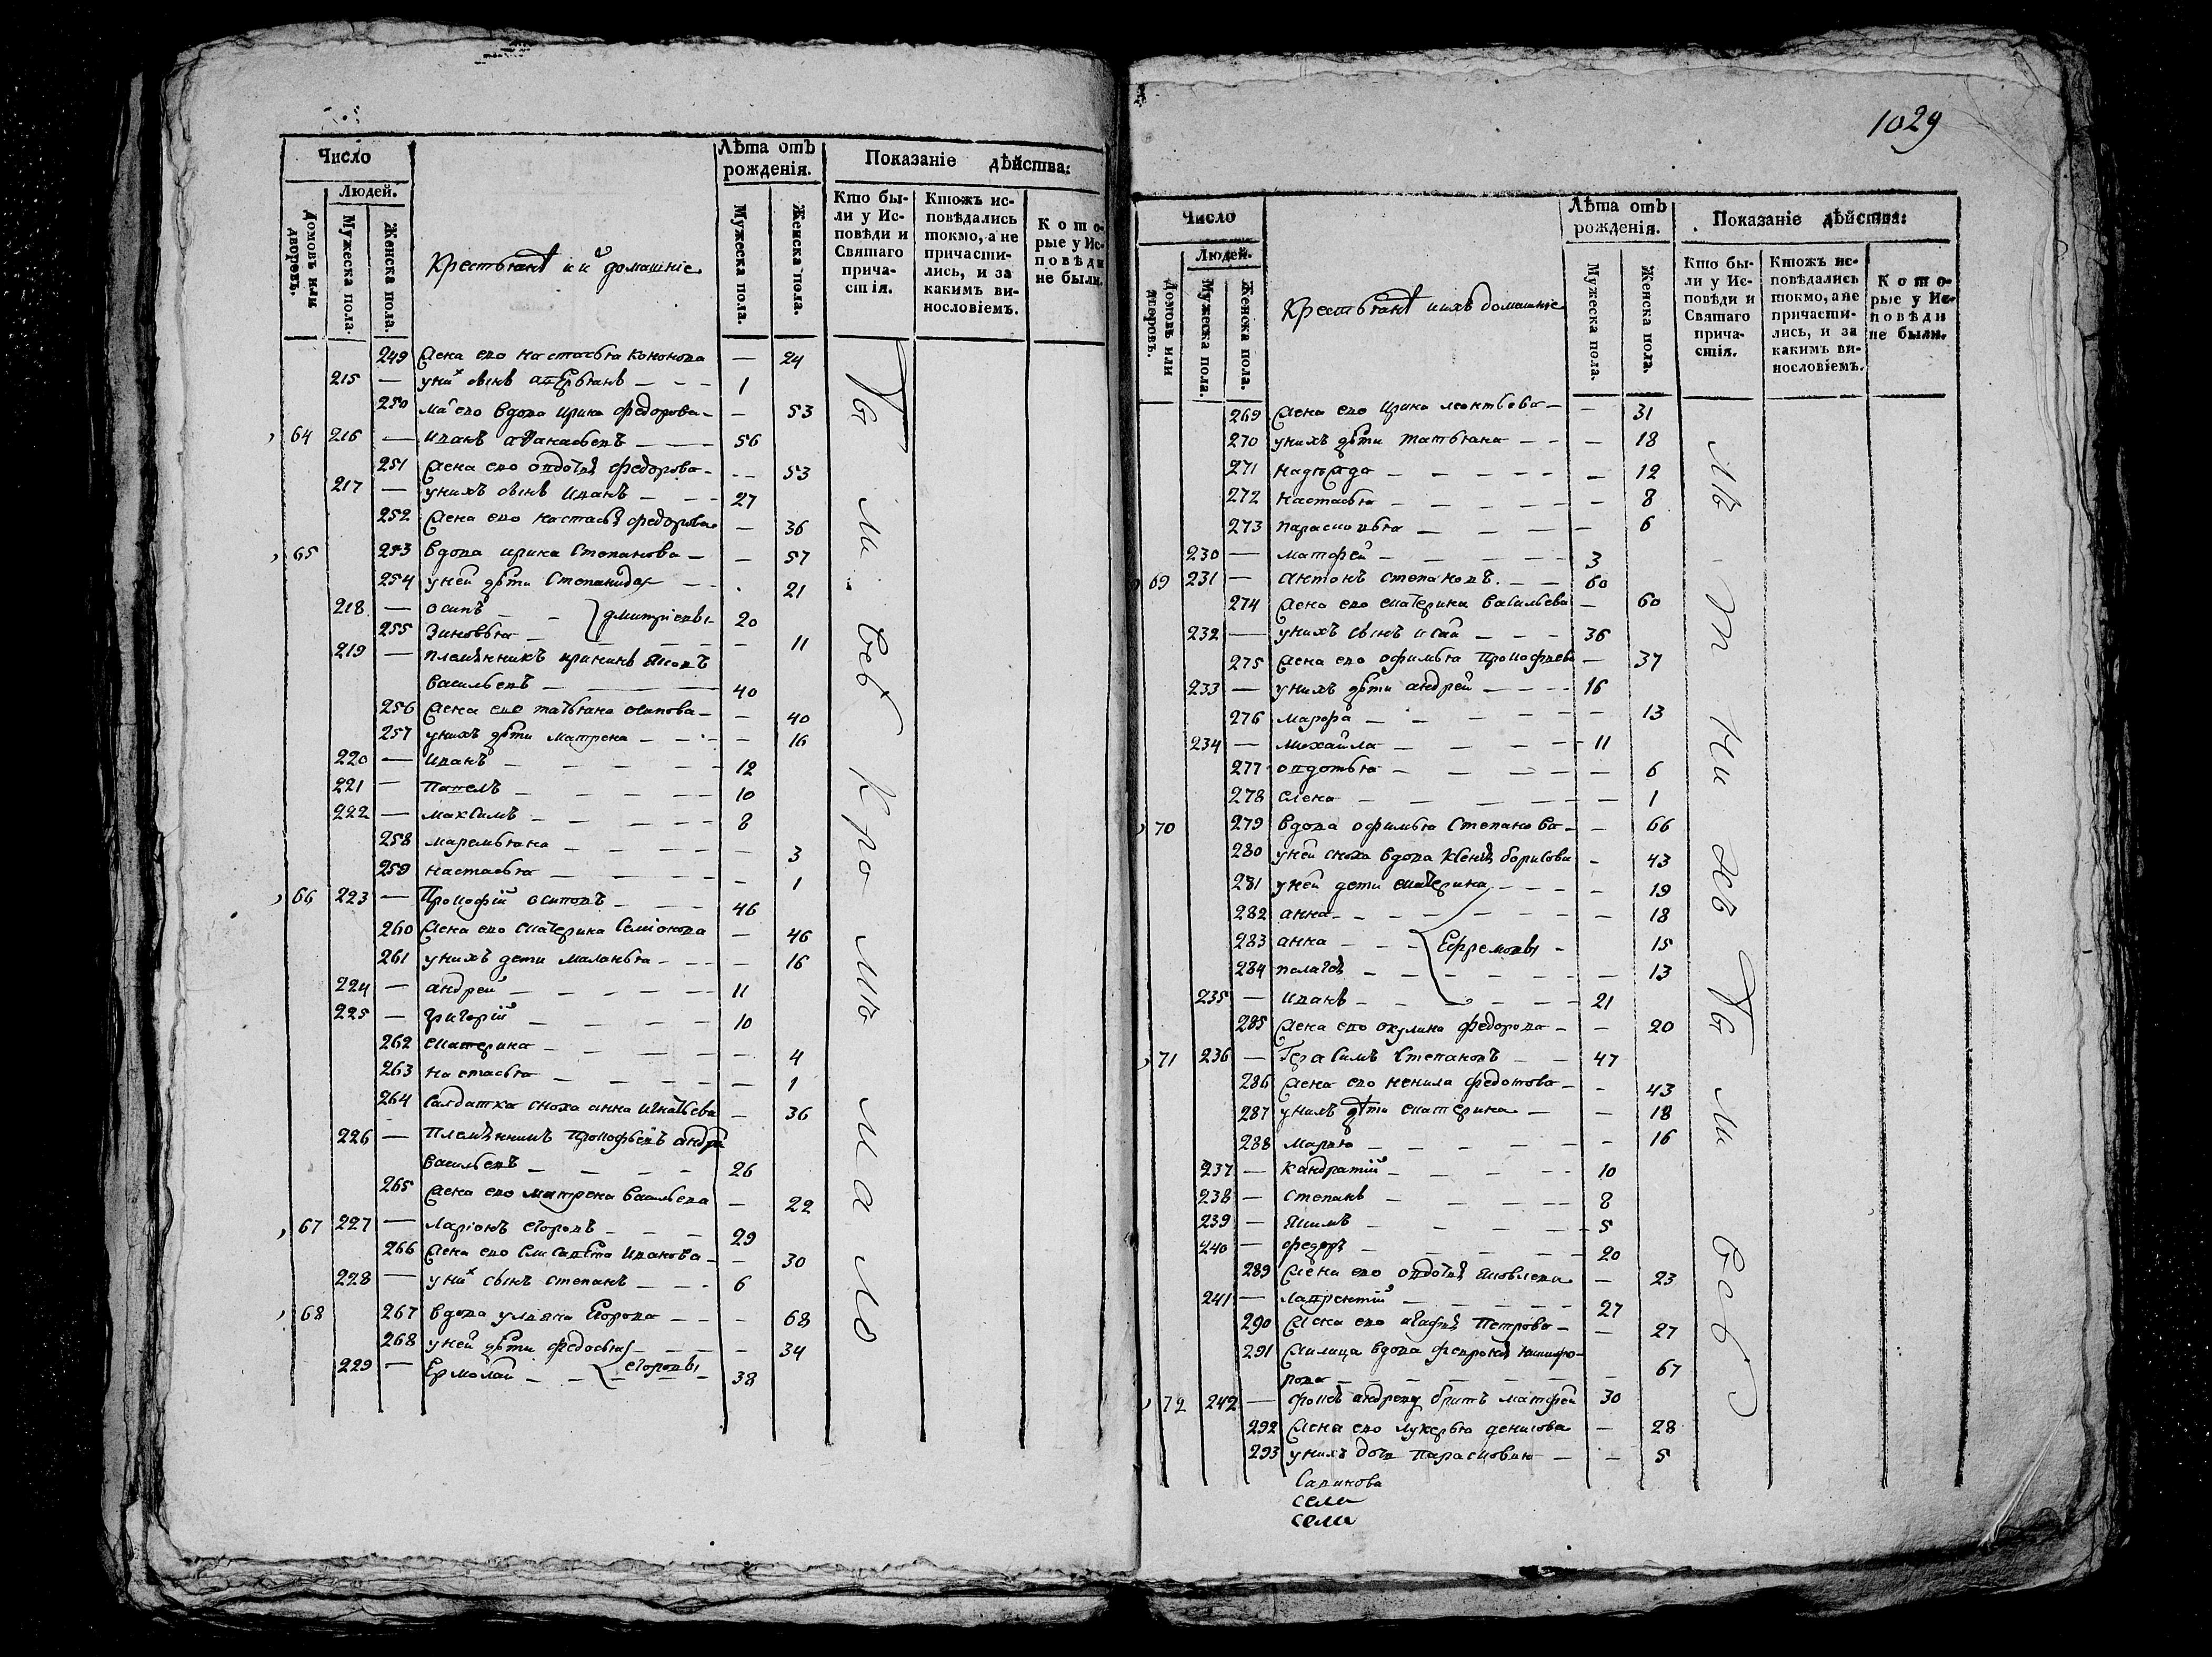 Число
Людей.
Домовъ или дворовъ.
Мужеска пола.
Женска пола.
Крестьянѣ и ихъ домашніе
Лѣта отъ рожденія.
Мужеска пола.
Женска пола.
Показаніе дѣйства:
Кто были у Исповѣди и Святаго причастія.
Ктожъ исповѣдались токмо, а не причастились, и за какимъ винословіемъ.
Которые у Исповѣди не были.
249 Жена ево Настасья Кононова — 24
215 — у них сынъ Аверьянъ — 1
250 Ма ево вдова Ирина Федорова — 53
64 216 — Иванъ Афанасьевъ — 56
251 Жена ево Овдотья Федорова — 53
217 — у нихъ сынъ Иванъ — 27
252 Жена ево Настасья Федорова — 36
65 253 Вдова Ирина Степанова — 57
254 у ней дѣти Степанида — 21
218 — Осипъ — Дмитріевы 20
255 Зиновья — 11
219 — Племянникъ Ирининъ Яковъ
Васильевъ — 40
256 Жена ево Татьяна Осипова — 40
257 у нихъ дѣти Матрена — 16
220 — Иванъ — 12
221 — Павелъ — 10
222 — Максимъ — 8
258 Маремьяна — 3
259 Настасья — 1
66 223 — Прокофій Осиповъ — 46
260 Жена ево Екатерина Семіонова — 46
261 у нихъ дети Маланья — 16
224 — Андрей — 11
225 — Григорій — 10
262 Екатерина — 4
263 Настасья — 1
264 Салдатка сноха Анна Игнатьева — 36
226 — Племянникъ Прокофьевъ Андрей
Васильевъ — 26
265 Жена ево Матрена Васильева — 22
67 227 — Ларіонъ Егоровъ — 29
266 Жена ево Елисавета Иванова — 30
228 — у них сынъ Степанъ — 6
68 267 Вдова Ульяна Егорова — 68
268 у ней дѣти Федосья — 34
229 — Ермолай — Егоровы 38
1029
Число
Людей.
Домовъ или дворовъ.
Мужеска пола.
Женска пола.
Крестьянѣ и ихъ домашніе
Лѣта отъ рожденія.
Мужеска пола.
Женска пола.
Показаніе дѣйства:
Кто были у Исповѣди и Святаго причастія.
Ктожъ исповѣдались токмо, а не причастились, и за какимъ винословіемъ.
Которые у Исповѣди не были.
269 Жена ево Ирина Леонтьева — 31
270 у нихъ дѣти Татьяна — 18
271 Надежда — 12
272 Настасья — 8
273 Парасковья — 6
230 — Матфей — 3
69 231 — Антонъ Степановъ — 60
274 Жена ево Екатерина Васильева — 60
232 — у нихъ сынъ Исай — 36
275 Жена ево Офимья Прокофьева — 37
233 — у нихъ дѣти Андрей — 16
276 Марфа — 13
234 — Михайла — 11
277 Овдотья — 6
278 Елена — 1
70 279 Вдова Офимья Степанова — 66
280 у ней сноха вдова Ксенія Борисова — 43
281 у ней дети Екатерина — 19
282 Анна — 18
283 Анна — Ефремовы — 15
284 Пелагея — 13
235 — Иванъ — 21
285 Жена ево Окулина Федорова — 20
71 236 — Герасимъ Степановъ — 47
286 Жена ево Ненила Федотова — 43
287 у нихъ дѣти Екатерина — 18
288 Марья — 16
237 — Кандратій — 10
238 — Степанъ — 8
239 — Якимъ — 5
240 — Федоръ — 20
289 Жена ево Овдотья Яковлева — 23
241 — Лаврентій — 27
290 Жена ево Агафья Петрова — 27
291 вдова Февронія Никифо-
рова — 67
72 242 — Андреевъ братъ Матфей 30
292 Жена ево Лукерья Денисова — 28
293 у нихъ дочь Парасковья — 5
села
села